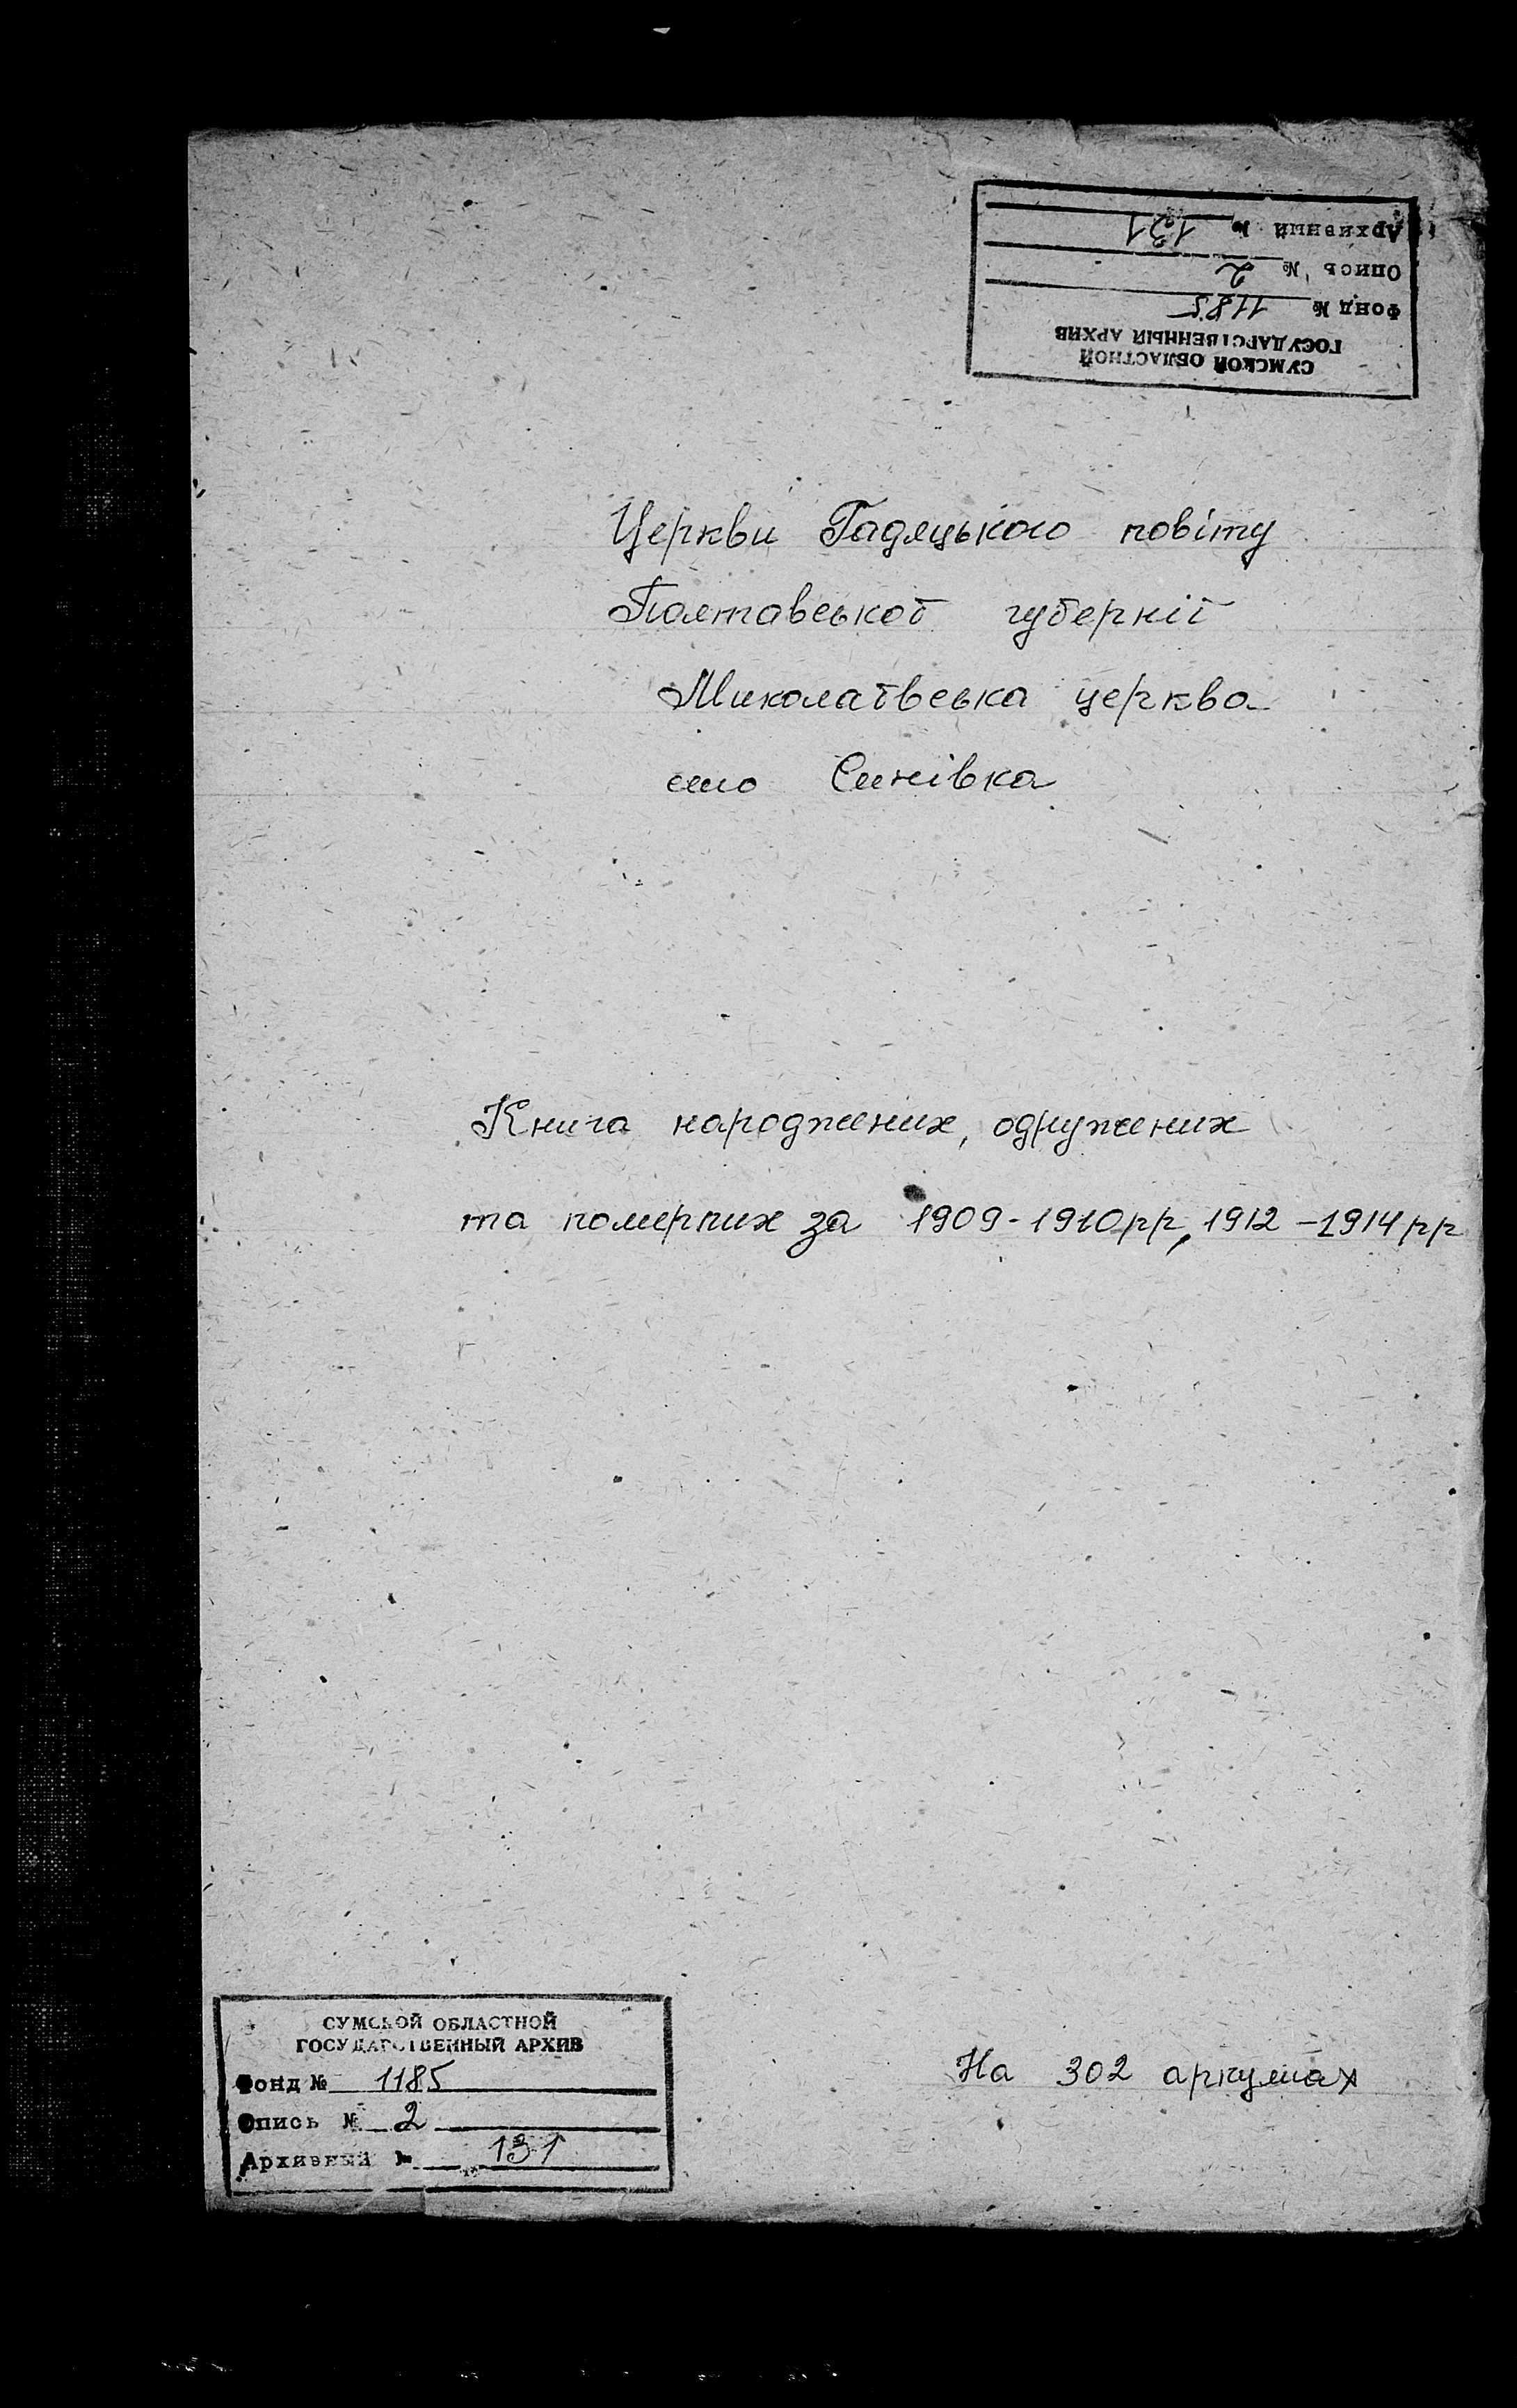 СУМСКОЙ ОБЛАСТНОЙ
ГОСУДАРСТВЕННЫЙ АРХИВ
Фонд № 1185
Опись № 2
Архивный № 131
Церкви Гадяцького повіту
Полтавської губернії
Миколаївська церква
село Синівка
Книга народжених, одружених
та померлих за 1909-1910рр, 1912-1914рр
На 302 аркушах
СУМСКОЙ ОБЛАСТНОЙ
ГОСУДАРСТВЕННЫЙ АРХИВ
Фонд № 1185
Опись № 2
Архивный № 131